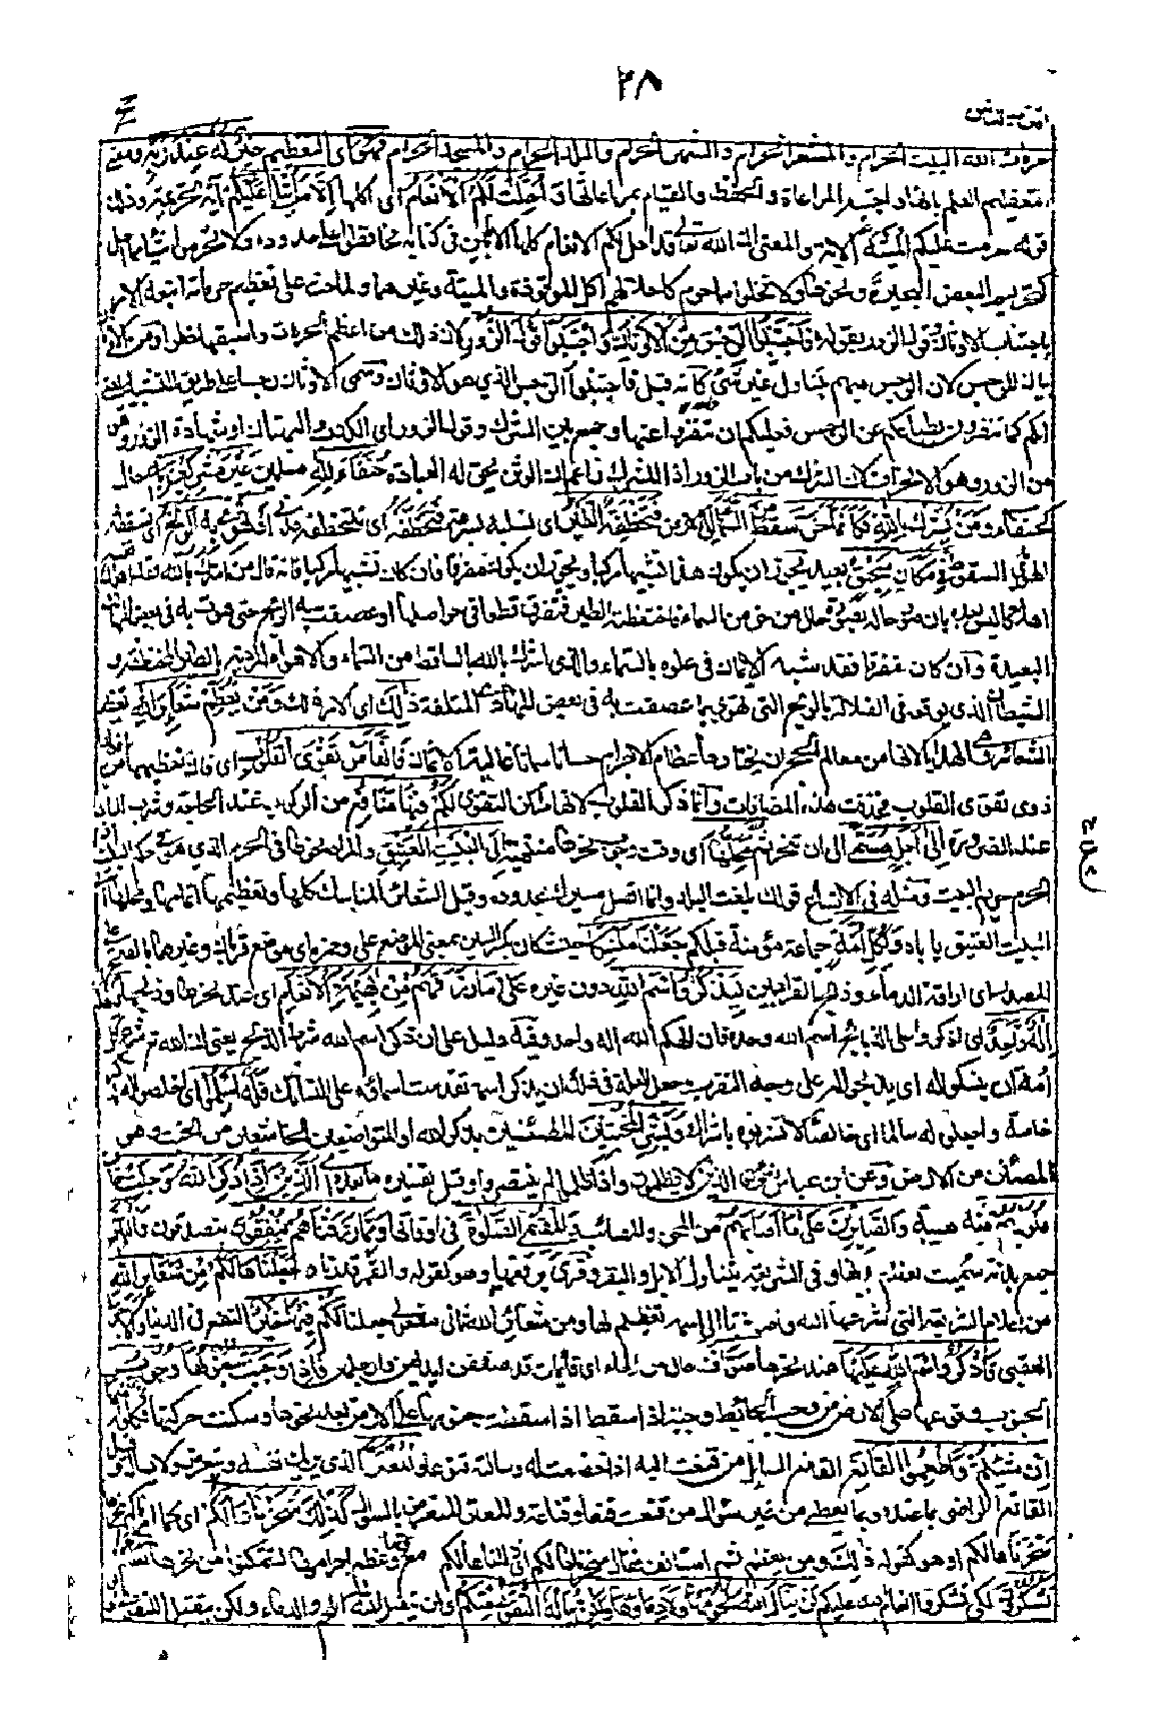 ٢٨
حرمات الله البيت الحرام والمشعر الحرام والشهر الحرام والبلد الحرام والمسجد الحرام فهو اى التعظيم خير له عند ربه ومعنى
التعظيم العلم بانها واجبة المراعاة والحفظ والقيام بمراعاتها واحلت لكم الانعام اى اكلها الا ما يتلى عليكم آية تحريمه وذلك
قوله حرمت عليكم الميتة الاية والمعنى ان الله تعالى قد احل لكم الانعام كلها الا ما بين فى كتابه فحافظوا على حدوده ولا تحرموا شيئا مما احل
كتحريم البعض البحيرة ونحوها ولا تحلوا مما حرم كاحلالهم اكل الموقوذة والميتة وغيرهما ولما حث على تعظيم حرماته اتبعه الامر
باجتناب الاوثان وقول الزور بقوله فاجتنبوا الرجس من الاوثان واجتنبوا قول الزور لان ذلك من اعظم الحرمات واسبقها
بيان للرجس لان الرجس مبهم يتناول غير شئ كانه قيل فاجتنبوا الرجس الذى هو الاوثان وسمى الاوثان رجسا على طريق التشبيه يعنى
انكم كما تنفرون بطباعكم عن الرجس فعليكم ان تنفروا عنها وجمع بين الشرك وقول الزور اى الكذب والبهتان او شهادة الزور وهو
من الزور وهو الانحراف لان الشرك من باب الزور اذ المشرك زاعم ان الوثن يحق له العبادة حنفاء لله مسلمين غير مشركين به حال
كحنفاء ومن يشرك بالله فكانما خر سقط من السماء الى الارض فتخطفه الطير اى تسلبه بسرعة فتخطفه اى تتخطفه مدنى او تهوى به الريح اى تسقطه
الهوى السقوط فى مكان سحيق بعيد يجوز ان يكون هذا تشبيها مركبا ويجوز ان يكون مفرقا فان كان تشبيها مركبا فكانه قال من اشرك بالله فقد اهلك نفسه
اهلاكا ليس بعده بان صور حاله بصورة حال من خر من السماء فاختطفته الطير فتفرق قطعا فى حواصلها او عصفت به الريح حتى هوت به فى بعض المهالك
البعيدة وان كان مفرقا فقد شبه الايمان فى علوه بالسماء والذى اشرك بالله بالساقط من السماء والاهواء المردية بالطير المختطفة و
الشيطان الذى يوقعه فى الضلالة بالريح التى تهوى بما عصفت به فى بعض المهاوى المتلفة ذلك اى الامر ذلك ومن يعظم شعائر الله تعظيم
الشعائر وهى الهدايا لانها من معالم الحج ان يختارها عظام الاجرام حسانا سمانا غالية الاثمان فانها من تقوى القلوب اى فان تعظيمها من افعال
ذوى تقوى القلوب فحذفت هذه المضافات وانما ذكر القلوب لانها مراكز التقوى لكم فيها منافع من الركوب عند الحاجة وشرب البانها
عند الضرورة الى اجل مسمى الى ان تنحر ثم محلها اى وقت وجوب نحرها منتهية الى البيت العتيق والمراد نحرها فى الحرم الذى هو فى حكم البيت اذ
الحرم حريم البيت ومثله فى الاتساع قولك بلغت البلد وانما اتصل مسيرك بحدوده وقيل الشعائر المناسك كلها وتعظيمها اتمامها ومحلها الى
البيت العتيق ياباه ولكل امة جماعة مؤمنة قبلكم جعلنا منسكا حيث كان بكسر السين بمعنى الموضع على وحمزة اى موضع قربان وغيرهما بالفتح على
المصدر اى اراقة الدماء وذبح القرابين ليذكروا اسم الله دون غيره على ما رزقهم من بهيمة الانعام اى عند نحرها وذبحها فالهكم
اله واحد اى اذكروا على الذبائح اسم الله وحده فان الهكم اله واحد وفيه دليل على ان ذكر اسم الله شرط الذبح يعنى ان الله تعالى شرع لكل
امة ان ينسكوا له اى يذبحوا له على وجه التقرب وجعل العلة فى ذلك ان يذكر اسمه تقدست اسماؤه على النسائك فله اسلموا اى اخلصوا له الذكر
خاصة واجعلوا له سالما اى خالصا لا تشوبوه باشراك وبشر المخبتين المطمئنين بذكر الله او المتواضعين الخاشعين من الخبت وهو
المطمئن من الارض وعن ابن عباس رضى الله عنهما الذين لا يظلمون واذا ظلموا لم ينتصروا وقيل تفسيره ما بعده اى الذين اذا ذكر الله وجلت خافت
قلوبهم منه هيبة والصابرين على ما اصابهم من المحن والمصائب والمقيمى الصلوة فى اوقاتها ومما رزقناهم ينفقون يتصدقون والبدن
جمع بدنة سميت لعظم بدنها وفى الشريعة يتناول الابل والبقر وقرئ برفعها وهو كقوله والقمر قدرناه جعلناها لكم من شعائر الله
من اعلام الشريعة التى شرعها الله واضافتها الى اسمه تعظيم لها ومن شعائر الله ثانى مفعولى جعلنا لكم فيها خير النفع فى الدنيا والاجر فى
العقبى فاذكروا اسم الله عليها عند نحرها صواف حال من الهاء اى قائمات قد صففن ايديهن وارجلهن فاذا وجبت جنوبها وجوب
الجنوب وقوعها على الارض من وجب الحائط وجبة اذا سقط اى اذا سقطت جنوبها على الارض بعد نحرها وسكنت حركتها فكلوا منها
ان شئتم واطعموا القانع القانع السائل من قنعت اليه اذا خضعت له وسالته قنوعا والمعتر الذى يريك نفسه ويتعرض ولا يسأل وقيل
القانع الراضى بما عنده وبما يعطى من غير سؤال من قنعت قنعا وقناعة والمعتر المتعرض بالسؤال كذلك سخرناها لكم اى كما امرناكم بنحرها
سخرناها لكم او هو كقوله ذلك ومن يعظم ثم استانف فقال سخرناها لكم اى ذللناها لكم مع قوتها وعظم اجرامها لتتمكنوا من نحرها لعلكم
تشكرون لكى تشكروا انعام الله عليكم لن ينال الله لحومها ولا دماؤها ولكن يناله التقوى منكم اى لن يتقبل الله اللحوم والدماء ولكن يتقبل التقوى